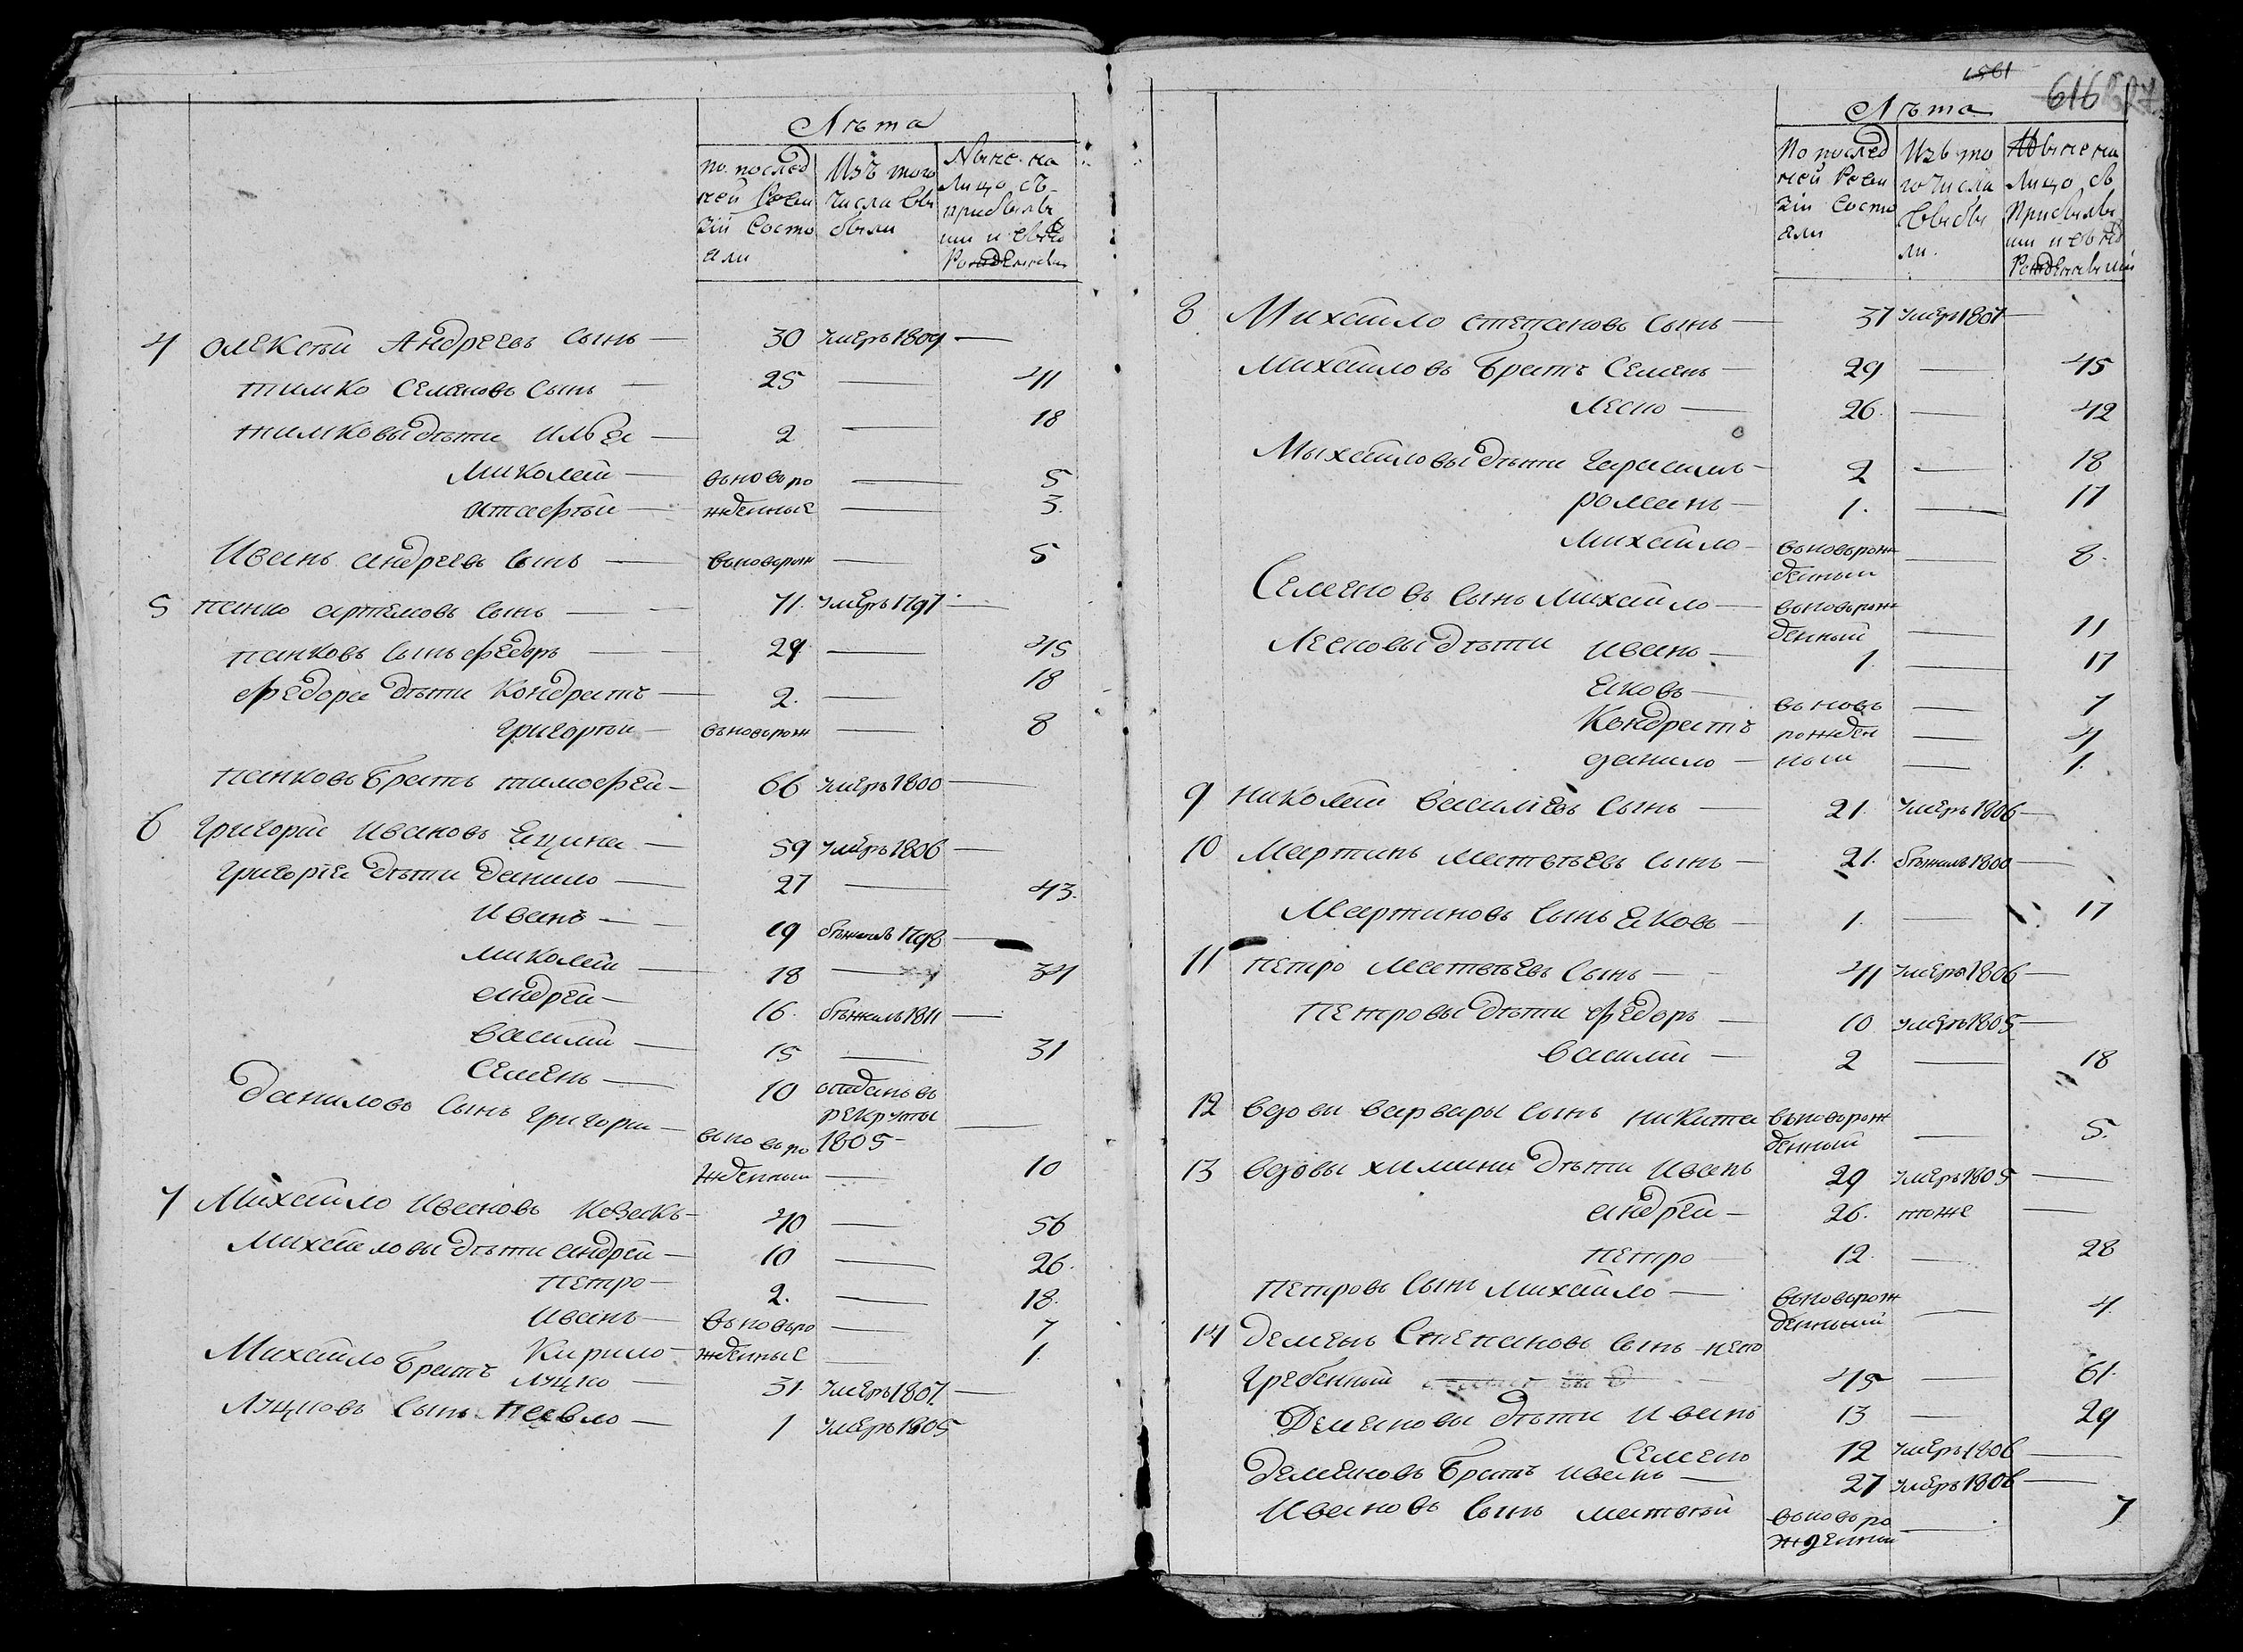 Лѣта
По послед
ней Реви
зіи Состо
али
Изъ того
числа вы
были
Ныне на
Лицо съ
прибылы
ми и внов
Рожденны
4 Олексѣй Андреевъ сынъ — 30 умеръ 1809 —
тимко Семеновъ сынъ — 25 — 41
тимковы дѣти Илья — 2 — 18
Миколай — вьноворо — 5
Матвѣй — жденные — 3.
Иванъ андреевъ сынъ — вьноворож — 5
5 панко артемовъ сынъ — 71. умеръ 1797 —
панковъ сынъ федоръ — 29 — 45
федора дѣти Кондратъ — 2. — 18
григорѣй — вьноворож — 8
панковъ братъ тимофей — 66 умеръ 1800 —
6 григорій ивановъ Ецина — 59 умеръ 1806 —
григорія дѣти данило — 27 — 43.
иванъ — 19 бѣжалъ 1798 —
миколай — 18 — 34
андрей — 16. бѣжалъ 1811 —
василий — 15 — 31
Семенъ — 10 отданъ въ
рекруты
1805 —
даниловъ сынъ григори — вьноворо
жденный — 10
7 Михайло ивановъ козакъ — 40 — 56
михайловы дѣти андрей — 10 — 26.
петро — 2. — 18.
иванъ — вьноворо — 7
Кирило — жденные — 1.
Михайло братъ луцко — 31. умеръ 1807. —
луцковъ сынъ павло — 1 умеръ 1805
1561
616
Лѣта
По послед
ней Реви
зіи Состо
али
Изъ то
го числа
выбы
ли.
Ныне на
Лицо съ
прибылы
ми и внов
Рожденными
8 Михайло степановъ сынъ — 37 умеръ 1807 —
михайловъ братъ Семенъ — 29 — 45
леско — 26. — 42
Михайловы дѣти герасимъ — 2 — 18
романъ — 1. — 17
михайло — вьноворож
денный — 8.
Семеновъ сынъ михайло — вьноворож
денный — 11
Лесковы дѣти иванъ — 1. — 17
яковъ — вь новь — 7
Кондратъ рожден — 4
данило — ныи — 1.
9 николай василіевъ сынъ — 21. умеръ 1806 —
10 Мартинъ матвѣевъ сынъ — 21. бѣжалъ 1800 —
Мартиновъ сынъ яковъ — 1. — 17
11 петро матвѣевъ сынъ — 41 умеръ 1806 —
петровы дѣти федоръ — 10 умеръ 1805 —
василий — 2 — 18
12 вдовы варвары сынъ никита вьноворож
денный — 5.
13 вдовы химини дѣти иванъ 29 умеръ 1805 —
андрей — 26. тоже —
петро — 12. — 28
петровъ сынъ михайло — вьноворож
денный — 4.
14 демянъ Степановъ сынъ
гребенный 45 — 61.
Демяновы дѣти иванъ 13 — 29
Семенъ 12 умеръ 1806 —
демяновъ братъ иванъ — 27 умеръ 1806 —
ивановъ сынъ матвѣй вьноворо
жденный — 7